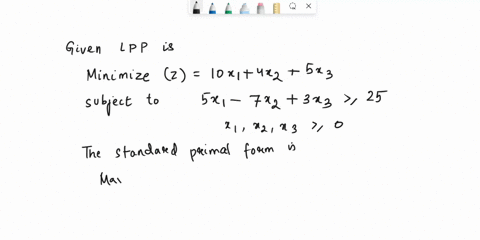 Given LPP is
Minimize (Z) = 10x₁ + 4x₂ + 5x₃
subject to 5x₁ - 7x₂ + 3x₃ >, 25
x₁, x₂, x₃ >, 0
The standard primal form is
Max